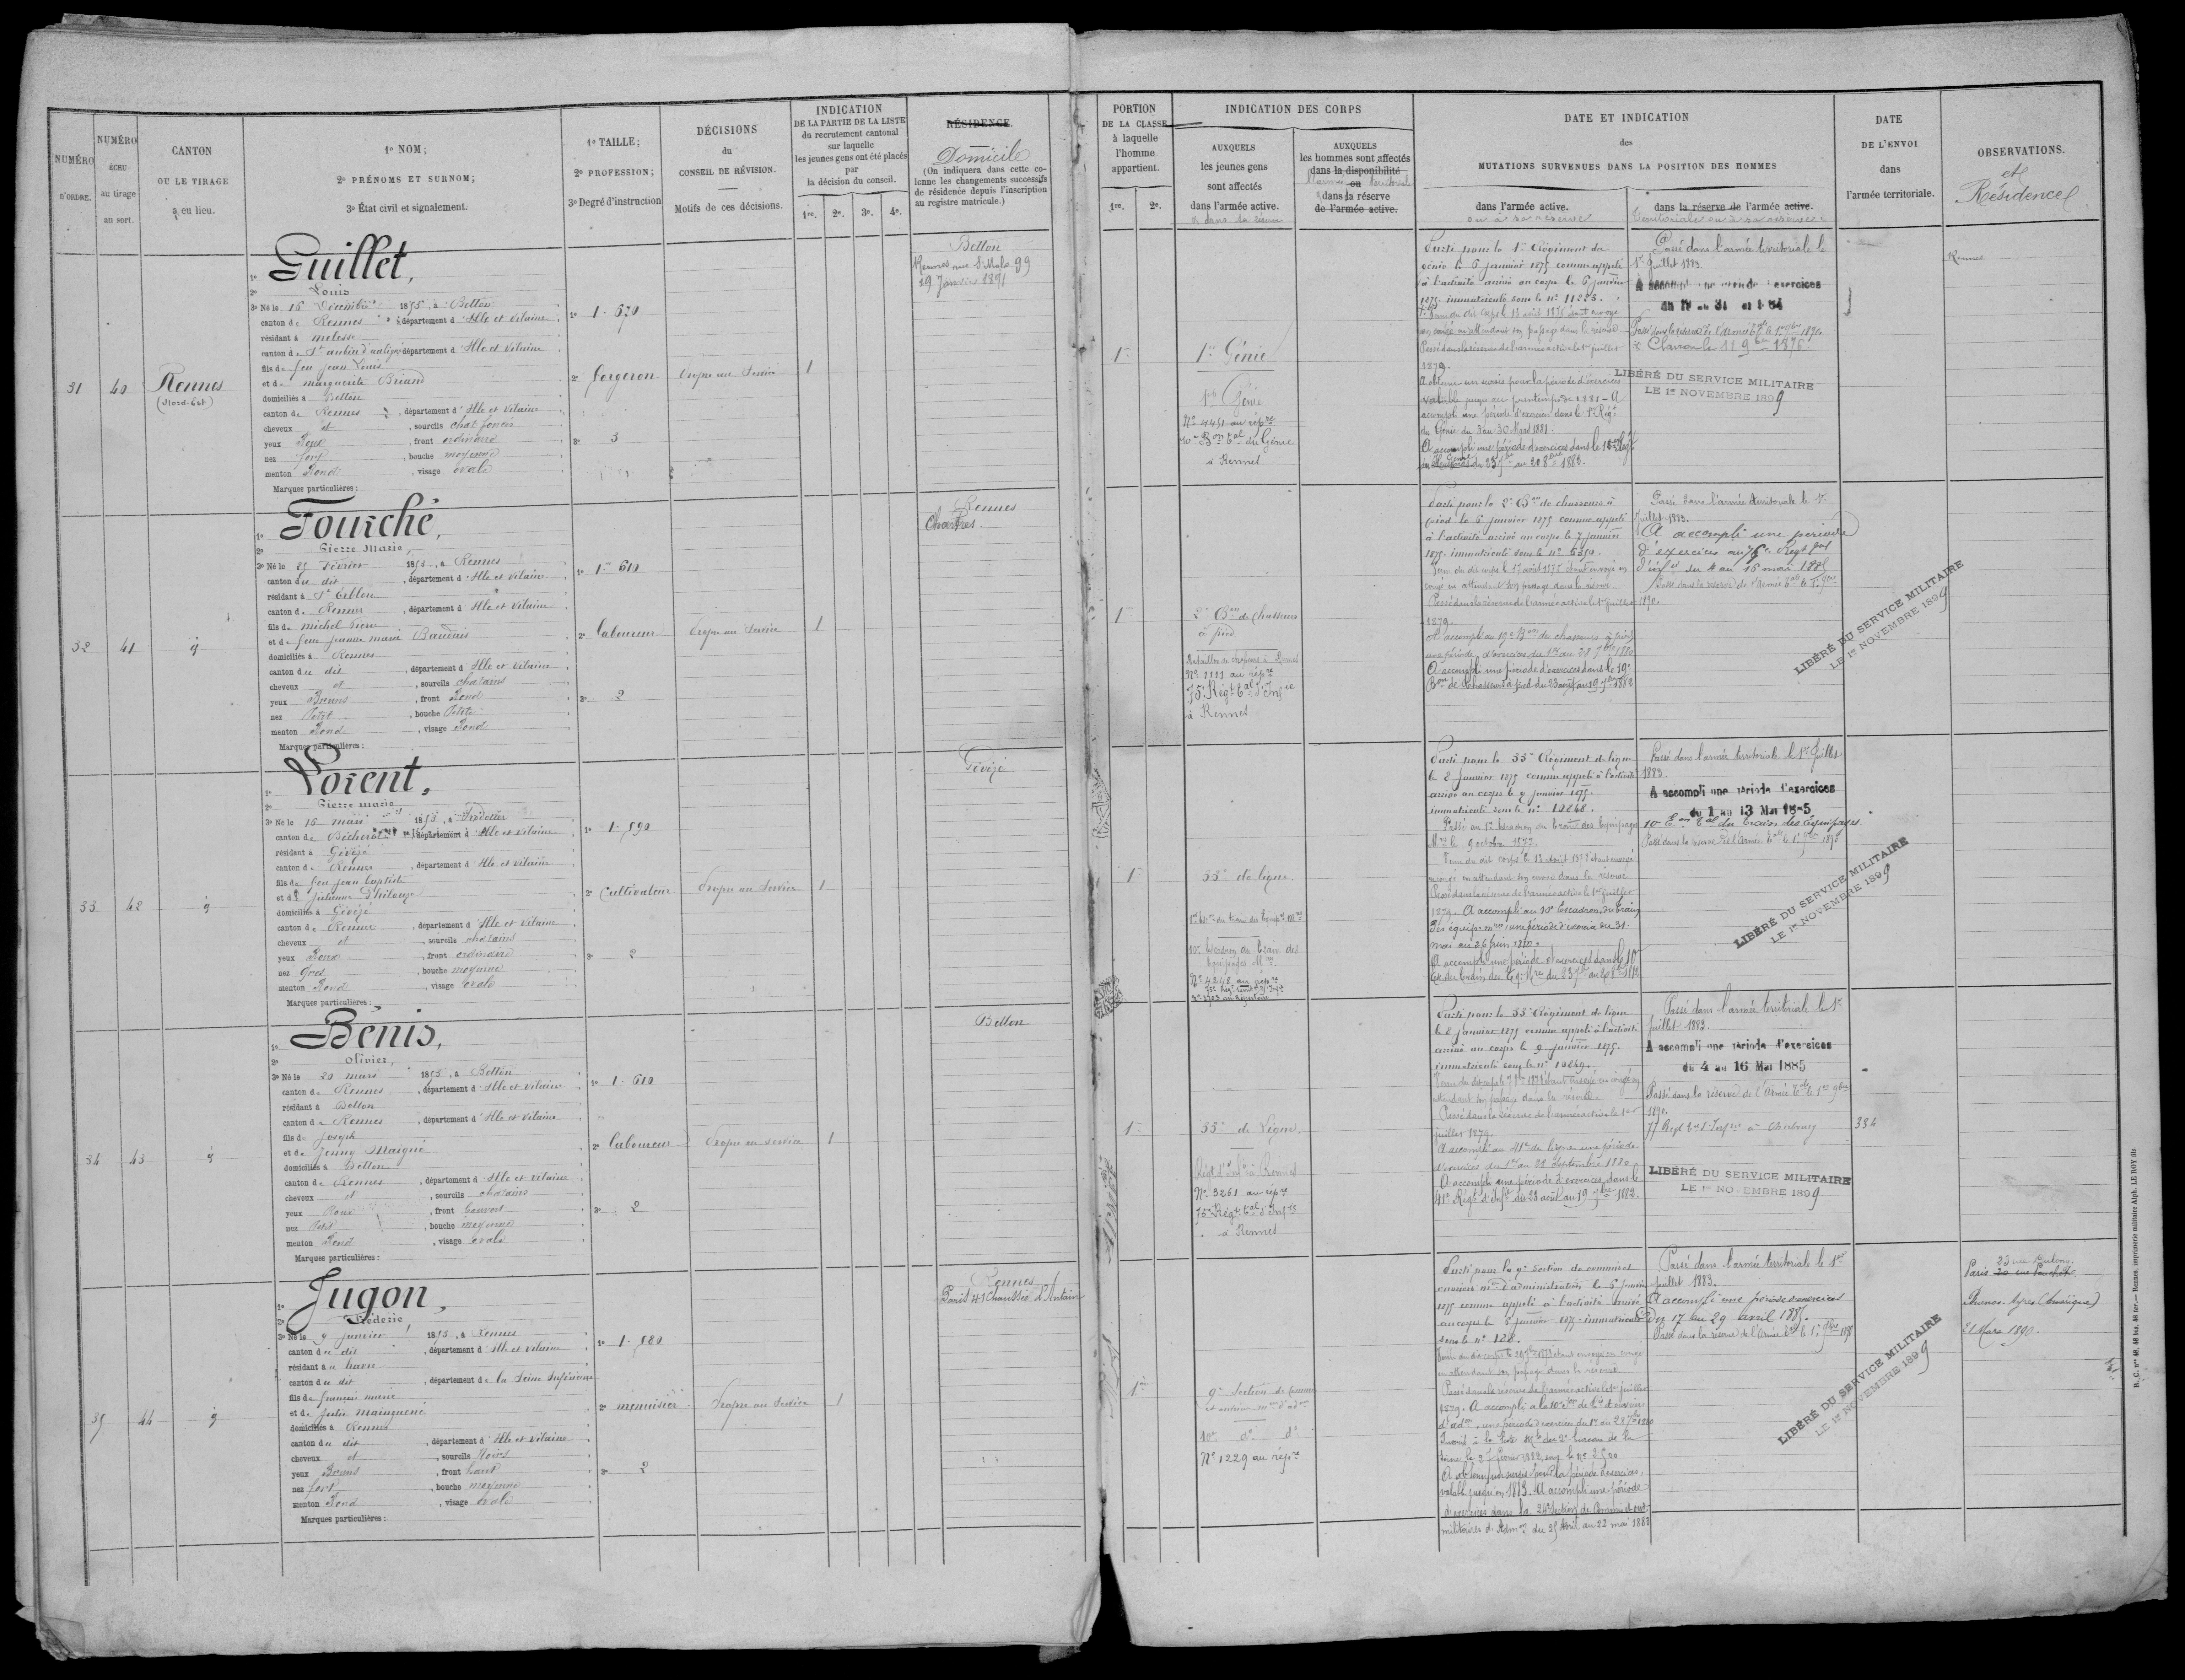 NUMÉRO D'ORDRE.
NUMÉRO échu au tirage au sort.
CANTON OU LE TIRAGE a eu lieu.
1º NOM;
2º PRÉNOMS ET SURNOM;
3º État civil et signalement.
1º TAILLE;
2º PROFESSION;
3º Degré d'instruction
DÉCISIONS du CONSEIL DE RÉVISION.
Motifs de ces décisions.
INDICATION DE LA PARTIE DE LA LISTE du recrutement cantonal sur laquelle les jeunes gens ont été placés par la décision du conseil.
1re. 2e. 3e. 4e.
RÉSIDENCE
Domicile
(On indiquera dans cette colonne les changements successifs de résidence depuis l'inscription au registre matricule.)
PORTION DE LA CLASSE à laquelle l'homme appartient.
1re. 2e.
INDICATION DES CORPS
AUXQUELS les jeunes gens sont affectés dans l'armée active.
& dans sa réserve
AUXQUELS les hommes sont affectés dans la disponibilité ou dans la réserve de l'armée active.
l'armée territoriale
DATE ET INDICATION des MUTATIONS SURVENUES DANS LA POSITION DES HOMMES
dans l'armée active.
ou à sa réserve
dans la réserve de l'armée active.
Territoriale ou à sa réserve
DATE DE L'ENVOI dans l'armée territoriale.
OBSERVATIONS.
et Résidence
31
40
Rennes
(Nord-Est)
1º Guillet,
2º Louis
3º Né le 16 Décembre 1853, à Betton
canton de Rennes, département d'Ille et Vilaine
résidant à Melesse
canton de St aubin d'aubigné département d'Ille et Vilaine
fils de feu Jean Louis
et de marguerite Briand
domiciliés à Betton
canton de Rennes, département d'Ille et Vilaine
cheveux et, sourcils chat. foncés
yeux Roux, front ordinaire
nez fort, bouche moyenne
menton Rond, visage ovale
Marques particulières:
1º 1.670
2º forgeron
3º 3
Propre au Service
1
Betton
Rennes rue St Malo 99
19 Janvier 1891
1re
1er Génie
1er Génie
Nº 4451 au répre
10e Bon tal du Génie
à Rennes
Parti pour le 1er Régiment du
génie le 6 janvier 1875 comme appelé
à l'activité arrivé au corps le 6 janvier
1875 immatriculé sous le nº 11225.
en congé en attendant son passage dans la réserve
Passé dans la réserve de l'armée active le 1er juillet
1879.
A obtenu un sursis pour la période d'exercices
valable jusqu'au printemps de 1881 - A
accompli une période d'exercices dans le 1er Régt
du Génie du 3 au 30 Mars 1881.
A accompli une période d'exercices dans le
Passé dans l'armée territoriale le
1er Juillet 1883.
A accompli une période d'exercices
du 19 au 31 1884
LIBÉRÉ DU SERVICE MILITAIRE
LE 1er NOVEMBRE 1899
Rennes
32
41
id
1º Fourché,
2º Pierre Marie,
3º Né le 25 Février 1853, à Rennes
canton du dit, département d'Ille et Vilaine
résidant à St Erblon
canton de Rennes, département d'Ille et Vilaine
fils de michel Pierre
et de feue Jeanne marie Baudais
domiciliés à Rennes
canton du dit, département d'Ille et Vilaine
cheveux et, sourcils chatains
yeux Bruns, front Rond
nez Petit, bouche Petite
menton Rond, visage Rond
Marques particulières:
1º 1.610
2º laboureur
3º 2
Propre au Service
1
Rennes
Chartres.
1re
2e Bon de chasseurs
à pied.
Bataillon de chasseurs à Rennes
Nº 1111 au répre
75e Régt tal d'Infie
à Rennes
Parti pour le 2e Bon de chasseurs à
pied le 6 janvier 1875 comme appelé
à l'activité arrivé au corps le 7 janvier
1875 immatriculé sous le nº 6350.
congé en attendant son passage dans la réserve
Passé dans la réserve de l'armée active le 1er juillet
1879.
A accompli au 19e Bon de chasseurs à pied
une période d'exercices du 1er au 28 7bre 1880
A accompli une période d'exercices dans le 19e
Bon de Chasseurs à pied du 23 août au 19 7bre 1882
Passé dans l'armée territoriale le 1er
Juillet 1883.
A accompli une période
d'exercices au 75e Régt tal
d'infie du 4 au 16 mai 1885
Passé dans la réserve de l'Armée tale le 1er 9bre
1890.
LIBÉRÉ DU SERVICE MILITAIRE
LE 1er NOVEMBRE 1899
33
42
id
1º Lorent,
2º Pierre Marie
3º Né le 16 mars 1853, à
canton de Bécherel, département d'Ille et Vilaine
résidant à Gévezé
canton de Rennes, département d'Ille et Vilaine
fils de feu jean baptiste
et de Julienne
domiciliés à Gévezé
canton de Rennes, département d'Ille et Vilaine
cheveux et, sourcils chatains
yeux Roux, front ordinaire
nez Gros, bouche moyenne
menton Rond, visage ovale
Marques particulières:
1º 1.590
2º Cultivateur
3º 2
Propre au Service
1
Gévezé
1re
33e de ligne.
10e Escadron du Train des
Equipages Mres
Nº 4248 au répre
Parti pour le 33e Régiment de ligne
le 8 janvier 1875 comme appelé à l'activité
arrivé au corps le 9 janvier 1875.
immatriculé sous le nº 10868.
Passé au 1er Escadron du train des Equipages
Mres le 9 octobre 1877.
Passé dans la réserve de l'armée active le 1er juillet
1879. A accompli au 10e Escadron du train
des équip. mres une période d'exercices du 31
mai au 26 juin 1880.
A accompli une période d'exercices dans le 10e
Passé dans l'armée territoriale le 1er Juillet
1883.
A accompli une période d'exercices
du 1 au 13 Mai 1885
10e Eon tal du train des équipages
Passé dans la réserve de l'Armée tale le 1er 9bre 1890
LIBÉRÉ DU SERVICE MILITAIRE
LE 1er NOVEMBRE 1899
34
43
id
1º Bénis,
2º Olivier,
3º Né le 20 mars 1853, à Betton
canton de Rennes, département d'Ille et Vilaine
résidant à Betton
canton de Rennes, département d'Ille et Vilaine
fils de Joseph
et de Jenny Maigné
domiciliés à Betton
canton de Rennes, département d'Ille et Vilaine
cheveux et, sourcils chatains
yeux Roux, front Couvert
nez Petit, bouche moyenne
menton Rond, visage ovale
Marques particulières:
1º 1.610
2º laboureur
3º 2
Propre au service
1
Betton
1re
33e de Ligne.
Régt d'Infie à Rennes
Nº 3261 au répre
75e Régt tal d'Infie
à Rennes
Parti pour le 33e Régiment de ligne
le 8 janvier 1875 comme appelé à l'activité
arrivé au corps le 9 janvier 1875.
immatriculé sous le nº 10869.
attendant son passage dans la réserve.
Passé dans la réserve de l'armée active le 1er
juillet 1879.
A accompli au 41e de ligne une période
d'exercices du 1er au 28 Septembre 1880
A accompli une période d'exercices dans le
41e Régt d'Infie du 23 août au 19 7bre 1882.
Passé dans l'armée territoriale le 1er
juillet 1883.
A accompli une période d'exercices
du 4 au 16 Mai 1885
Passé dans la réserve de l'Armée tale le 1er 9bre
1890.
77 Régt tal d'Infie à Cherbourg
334
LIBÉRÉ DU SERVICE MILITAIRE
LE 1er NOVEMBRE 1899
35
44
id
1º Jugon,
2º Frédéric
3º Né le 9 janvier 1853, à Rennes
canton du dit, département d'Ille et Vilaine
résidant au havre
canton du dit, département de la Seine Inférieure
fils de françois marie
et de Julie Mainguené
domiciliés à Rennes
canton du dit, département d'Ille et Vilaine
cheveux et, sourcils Noirs
yeux Bruns, front haut
nez fort, bouche moyenne
menton Rond, visage ovale
Marques particulières:
1º 1.580
2º menuisier
3º 2
Propre au Service
1
Rennes
Paris 41 Chaussée d'Antain
1re
9e Section de commis
et ouvriers mres d'adon
10e dº dº
Nº 1229 au répre
Parti pour la 9e Section de commis et
ouvriers mres d'administration le 6 janvier
1875 comme appelé à l'activité arrivé
au corps le 8 janvier 1875. immatriculé
sous le nº 128.
en attendant son passage dans la réserve
Passé dans la réserve de l'armée active le 1er juillet
1879. A accompli à la 10e
d'adon, une période d'exercices du 1er au 28 7bre 1880
valable jusqu'en 1883. A accompli une période
d'exercices dans la 24e Section de Commis et ouvrs
militaires d'Admon du 25 Avril au 22 mai 1883
Passé dans l'armée territoriale le 1er
juillet 1883.
A accompli une période d'exercices
du 17 au 29 avril 1885.
Passé dans la réserve de l'Armée tale le 1er 9bre 1890
LIBÉRÉ DU SERVICE MILITAIRE
LE 1er NOVEMBRE 1899
Paris
Buenos-Ayres (Amérique)
21 Mars 1890.
Rennes, imprimerie militaire Alph. LE ROY fils